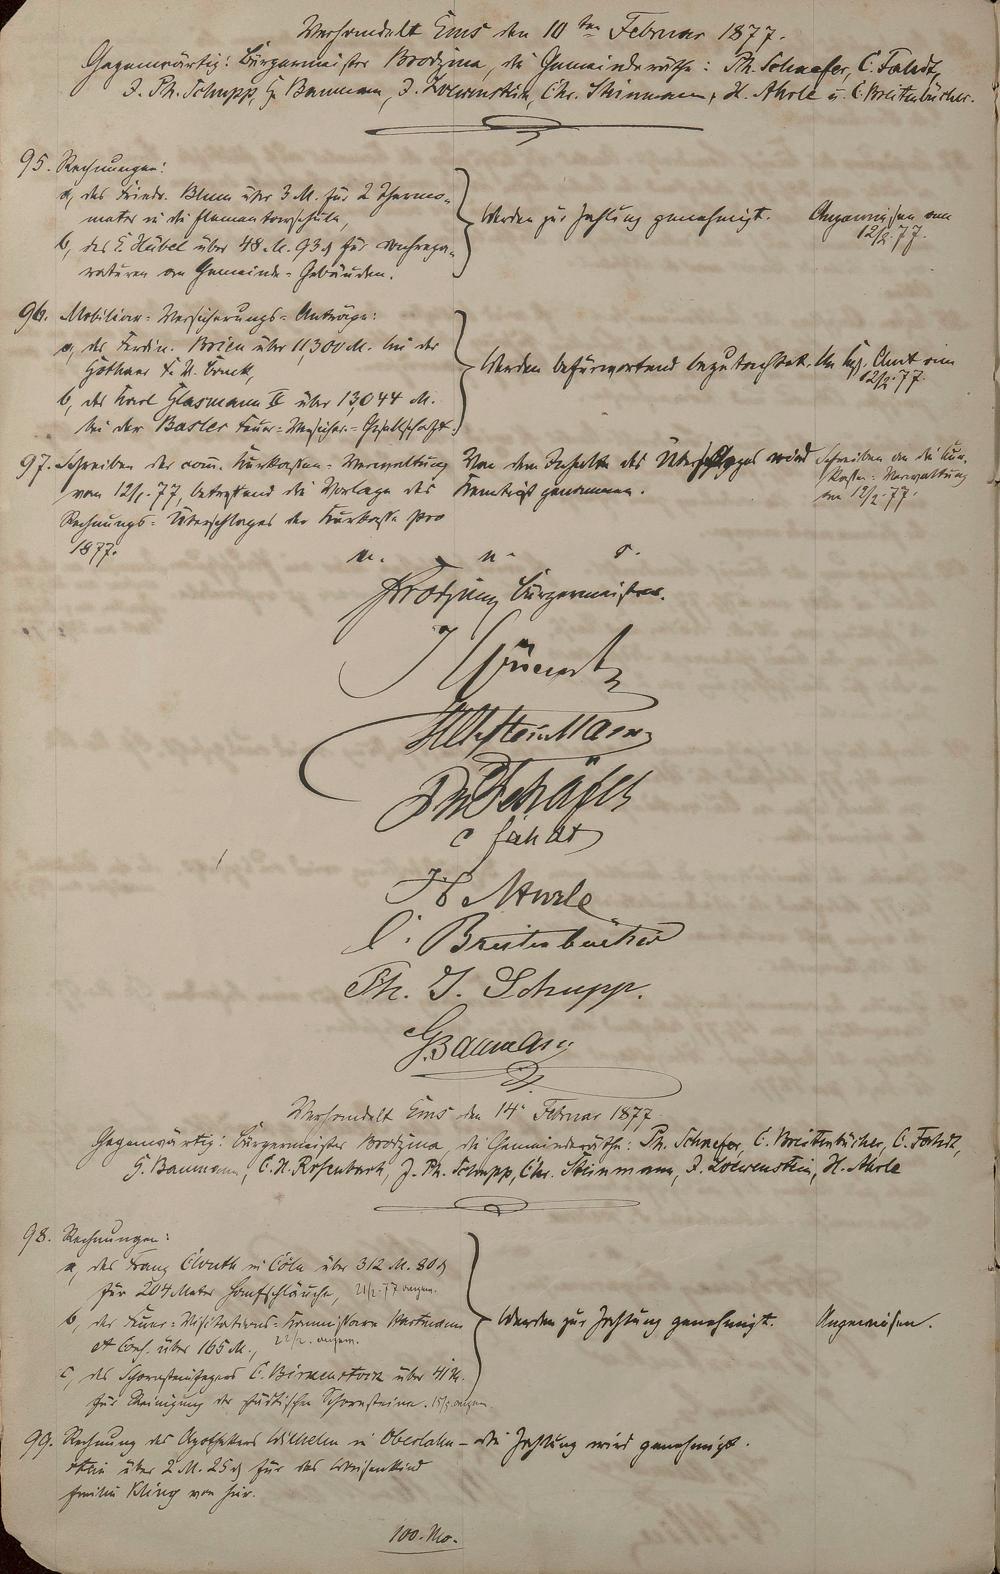 Verhandelt Ems den 10ten Februar 1877.
Gegenwärtig: Bürgermeister Brodzina, die Gemeinderäthe: Ph. Schaefer, C. Fahdt,
J. Ph. Schupp, G. Baumann, J. Loewenstein, Chr. Steinmann, H. Ahrle u. C. Breitenbücher.
95. Rechnungen:
a, des Friedr. Blum über 3 M. für 2 Thermo-
meter in die Elementarschule,
b, des E. Hübel über 48 M. 93 ₰ für
raturen an Gemeinde-Gebäuden.
Werden zur Zahlung genehmigt.
Angewiesen am
12/2. 77.
96. Mobiliar-Versicherungs-Anträge:
a, des Ferdin. Brien über 11,300 M. bei der
Gothaer
b, des Karl Glasmann II über 13,044 M.
bei der Basler Feuer-Versicher.-Gesellschaft.
Werden befürwortend begutachtet.
An Kgl. Amt am
12/2. 77.
97. Schreiben der com. Kurkassen-Verwaltung
vom 12/1. 77, betreffend die Vorlage des
Rechnungs-Ueberschlages der Kurkasse pro
1877.
Von dem Inhalte des Ueberschlages wird
Kenntniß genommen.
Schreiben an die Kur-
kassen-Verwaltung
am 12/2. 77.
v. u.
Brodzina Bürgermeister.
Chr Steinmann
Ph Schäfer
C Fahdt
H Ahrle
C. Breitenbücher
Ph. J. Schupp.
G Baumann
Verhandelt Ems den 14. Februar 1877.
Gegenwärtig: Bürgermeister Brodzina, die Gemeinderäthe: Ph. Schaefer, C. Breitenbücher, C. Fahdt,
G. Baumann, C. H. Rosenbach, J. Ph. Schupp, Chr. Steinmann, J. Loewenstein, H. Ahrle
98. Rechnungen:
a, des Franz Clouth in Cöln über 312 M. 80 ₰
für 204 Meter Hanfschläuche, 21/2. 77 angew.
b, der Feuer-Visitations-Kommissare Hartmann
et Cons. über 165 M., 22/2. angew.
c, des Schornsteinfegers C. über 41 M.
für Reinigung der städtischen Schornsteine. angew.
Werden zur Zahlung genehmigt.
Angewiesen.
99. Rechnung des Apothekers Wilhelm in Oberlahn-
stein über 2 M. 25 ₰ für das Waisenkind
Emilie Kling von hier.
Die Zahlung wird genehmigt.
100. No.